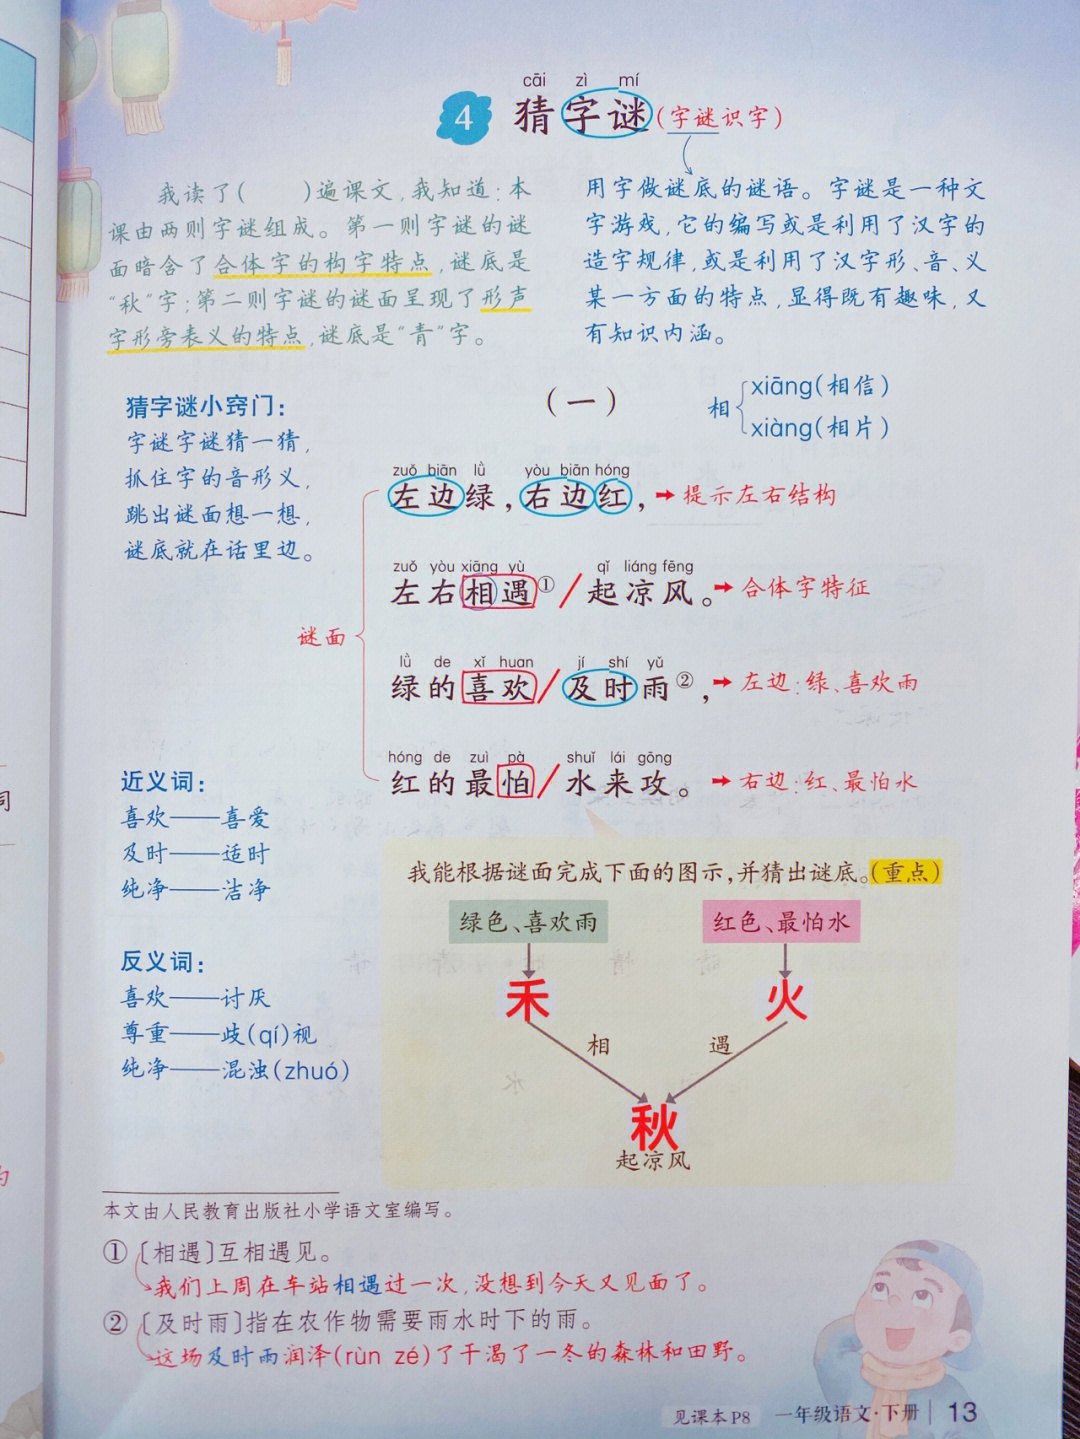 cāi zì mí
4 猜字谜(字谜识字)
我读了( )遍课文,我知道:本
课由两则字谜组成。第一则字谜的谜
面暗含了合体字的构字特点,谜底是
“秋”字;第二则字谜的谜面呈现了形声
字形旁表义的特点,谜底是“青”字。
用字做谜底的谜语。字谜是一种文
字游戏,它的编写或是利用了汉字的
造字规律,或是利用了汉字形、音、义
某一方面的特点,显得既有趣味,又
有知识内涵。
猜字谜小窍门:
字谜字谜猜一猜,
抓住字的音形义,
跳出谜面想一想,
谜底就在话里边。
(一)
相
xiāng(相信)
xiàng(相片)
谜面
zuǒ biān lǜ yòu biān hóng
左边绿,右边红,➡提示左右结构
zuǒ yòu xiāng yù qǐ liáng fēng
左右相遇①/起凉风。➡合体字特征
lǜ de xǐ huan jí shí yǔ
绿的喜欢/及时雨②,➡左边:绿、喜欢雨
hóng de zuì pà shuǐ lái gōng
红的最怕/水来攻。➡右边:红、最怕水
近义词:
喜欢——喜爱
及时——适时
纯净——洁净
反义词:
喜欢——讨厌
尊重——歧(qí)视
纯净——混浊(zhuó)
我能根据谜面完成下面的图示,并猜出谜底。(重点)
绿色、喜欢雨 红色、最怕水
禾 火
相 遇
秋
起凉风
本文由人民教育出版社小学语文室编写。
①〔相遇〕互相遇见。
我们上周在车站相遇过一次,没想到今天又见面了。
②〔及时雨〕指在农作物需要雨水时下的雨。
这场及时雨润泽(rùn zé)了干渴了一冬的森林和田野。
见课本P8 一年级语文·下册 13